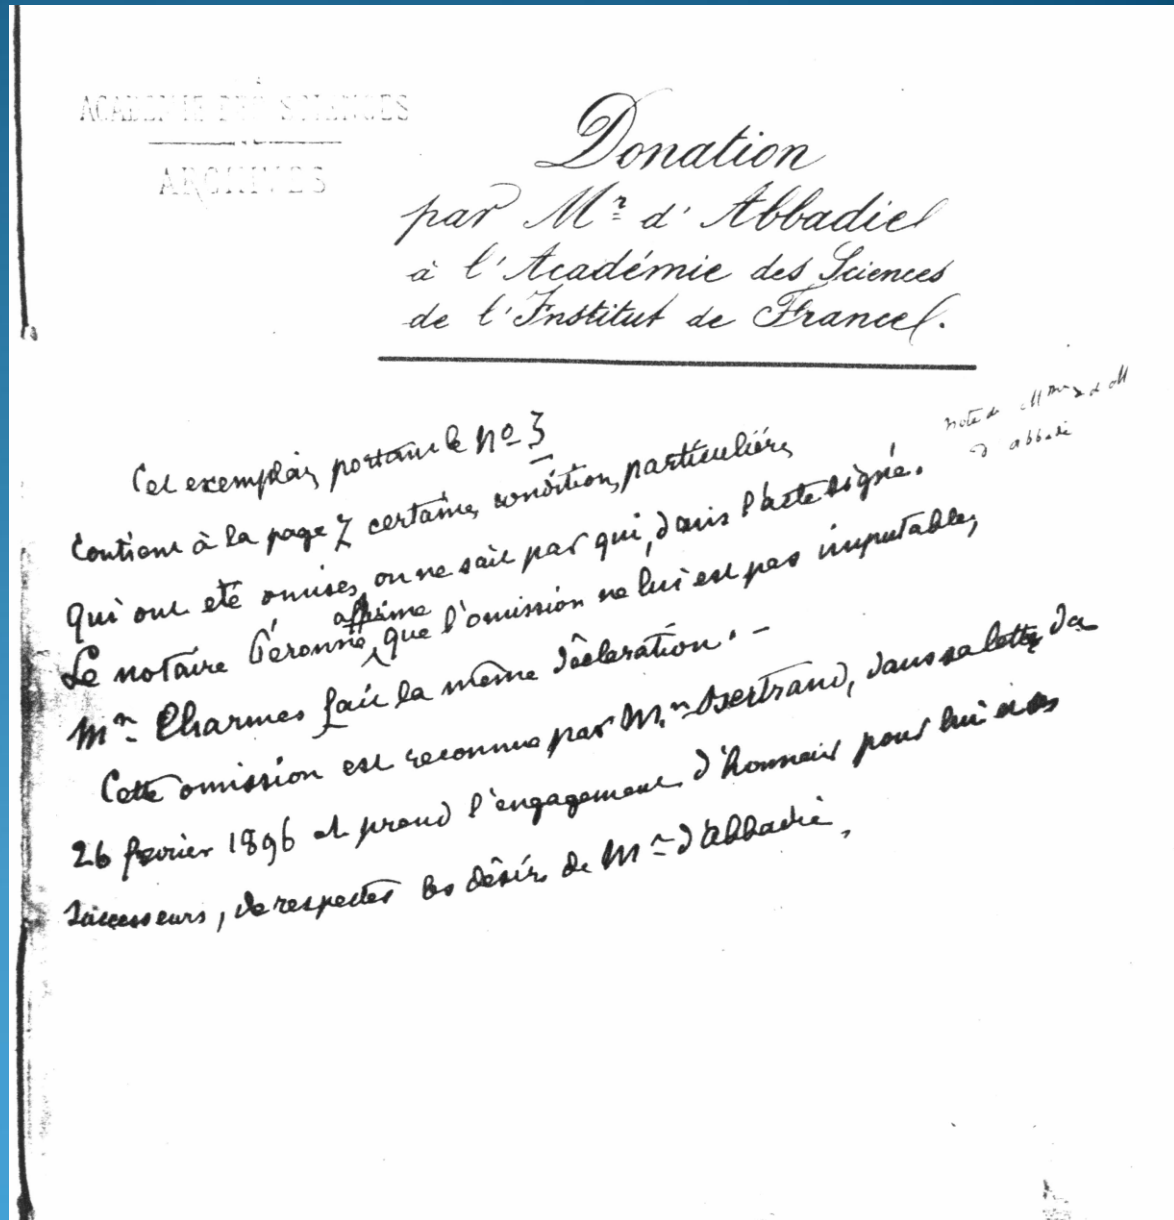 ACADEMIE DES SCIENCES
ARCHIVES
Donation
par Mr d'Abbadie
à l'Académie des Sciences
de l'Institut de France.
note de Mme
d'abbadie
Cet exemplaire portant le No 3
Contient à la page 7 certaines conditions particulières
qui ont eté omises, on ne sait par qui, dans l'acte signé.
Le notaire Péronne affirme que l'omission ne lui est pas imputable,
Mr Charmes fait la même déclaration. -
Cette omission est reconnue par Mr Bertrand, dans sa lettre du
26 fevrier 1896 et prend l'engagement d'honneur pour lui et ses
successeurs, de respecter les désirs de Mr d'Abbadie,